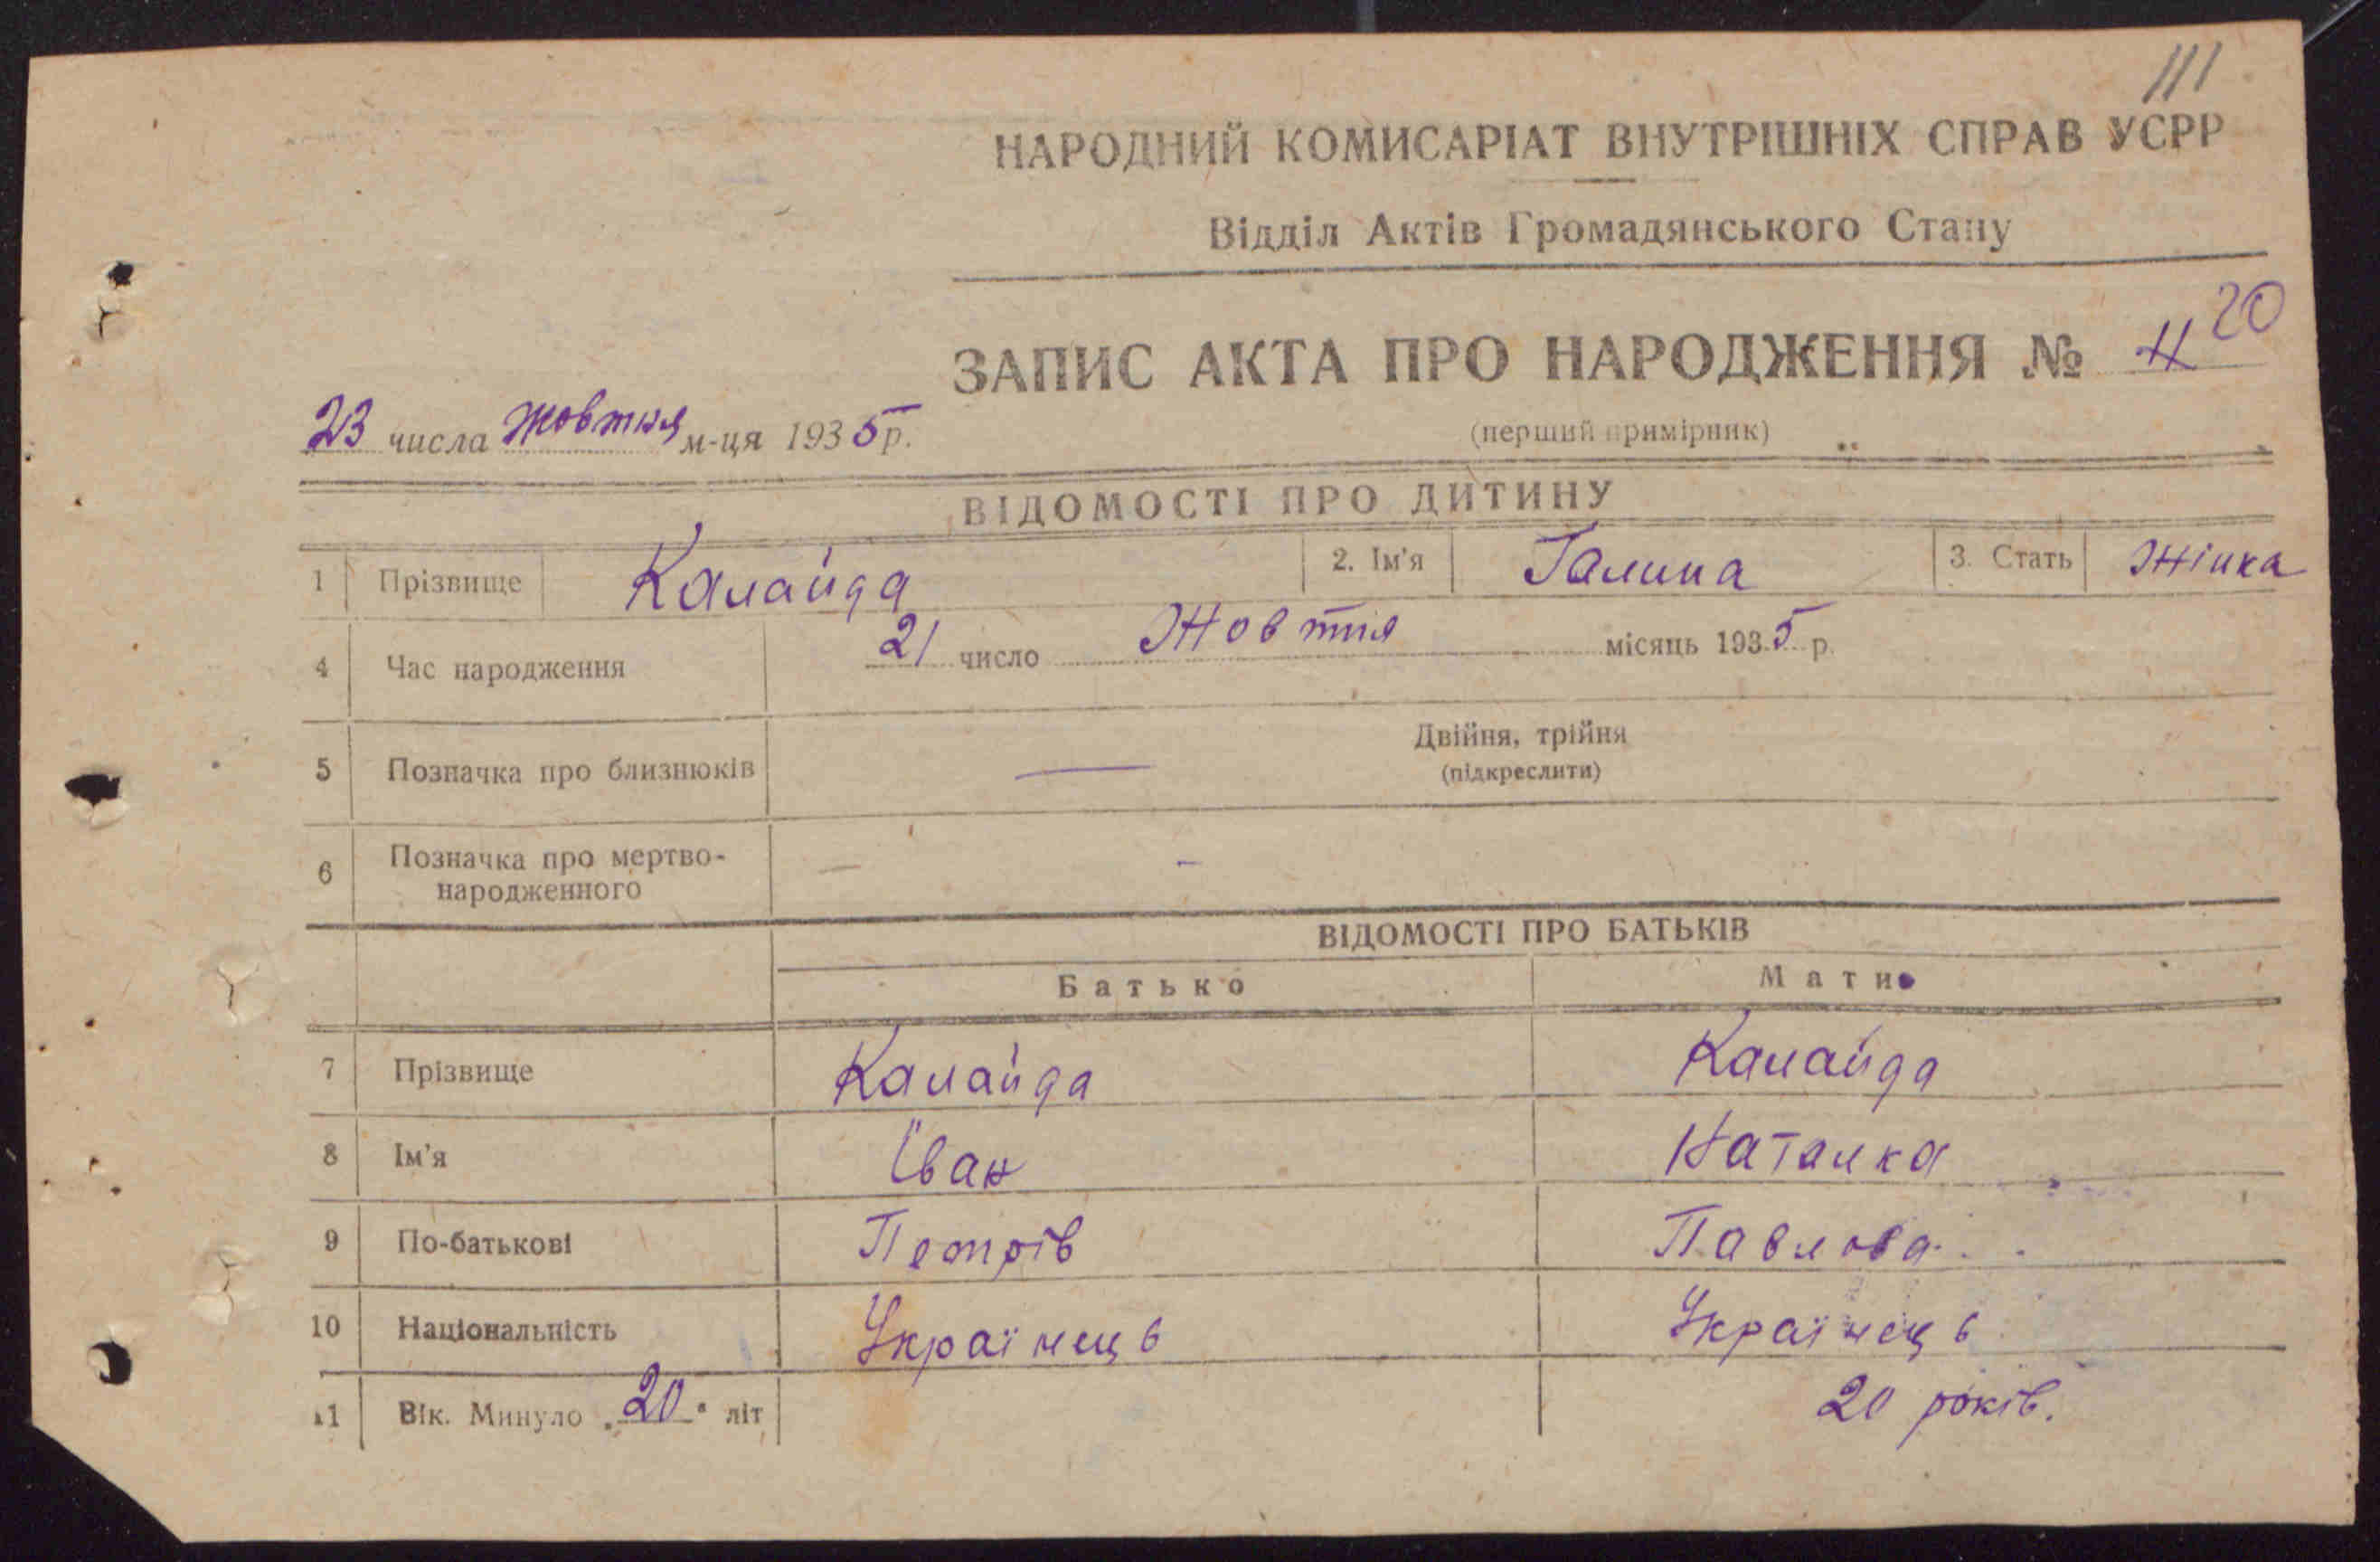 111
НАРОДНИЙ КОМИСАРІАТ ВНУТРІШНІХ СПРАВ УСРР
Відділ Актів Громадянського Стану
ЗАПИС АКТА ПРО НАРОДЖЕННЯ № 20
23 числа жовтня м-ця 1935 р.
(перший примірник)
ВІДОМОСТІ ПРО ДИТИНУ
1 Прізвище Калайда 2. Ім'я Галина 3. Стать Жінка
4 Час народження 21 число Жовтня місяць 1935 р.
5 Позначка про близнюків — Двійня, трійня
(підкреслити)
6 Позначка про мертво-
народженного — -
ВІДОМОСТІ ПРО БАТЬКІВ
Батько Мати
7 Прізвище Калайда Калайда
8 Ім'я Іван Наталка
9 По-батькові Петрів Павлова
10 Національність Українець Українець
11 Вік. Минуло „20" літ 20 років.